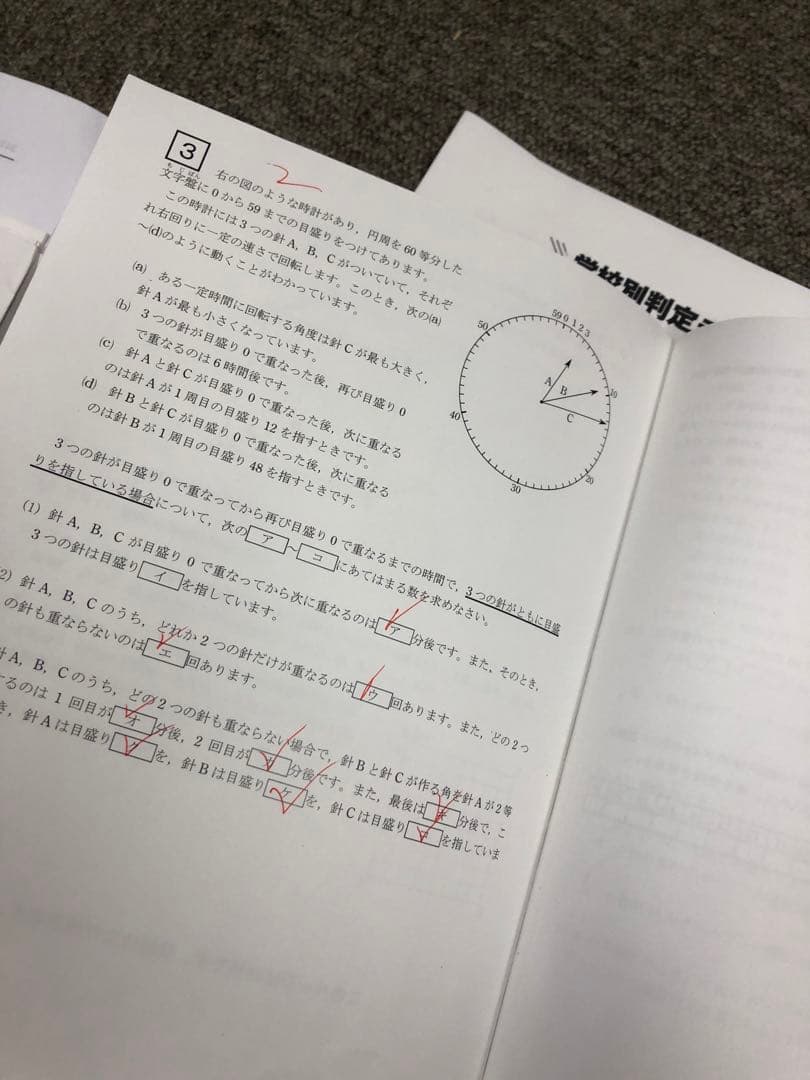 3
2
右の図のような時計があり，円周を60等分した
文字盤に0から59までの目盛りをつけてあります。
もじばん
この時計には3つの針A，B，Cがついていて，それぞ
れ右回りに一定の速さで回転します。このとき，次の(a)
～(d)のように動くことがわかっています。
(a) ある一定時間に回転する角度は針Cが最も大きく，
針Aが最も小さくなっています。
(b) 3つの針が目盛り0で重なった後，再び目盛り0
で重なるのは6時間後です。
(c) 針Aと針Cが目盛り0で重なった後，次に重なる
のは針Aが1周目の目盛り12を指すときです。
(d) 針Bと針Cが目盛り0で重なった後，次に重なる
のは針Bが1周目の目盛り48を指すときです。
59 0 1 2 3
50
10
40
20
30
A
B
C
3つの針が目盛り0で重なってから再び目盛り0で重なるまでの時間で，3つの針がともに目盛
りを指している場合について，次のア～コにあてはまる数を求めなさい。
(1) 針A，B，Cが目盛り0で重なってから次に重なるのはア分後です。また，そのとき，
3つの針は目盛りイを指しています。
2) 針A，B，Cのうち，どれか2つの針だけが重なるのはウ回あります。また，どの2つ
の針も重ならないのはエ回あります。
針A，B，Cのうち，どの2つの針も重ならない場合で，針Bと針Cが作る角を針Aが2等
するのは1回目がオ分後，2回目がカ分後です。また，最後はキ分後で，こ
き，針Aは目盛りクを，針Bは目盛りケを，針Cは目盛りコを指していま
学校別判定